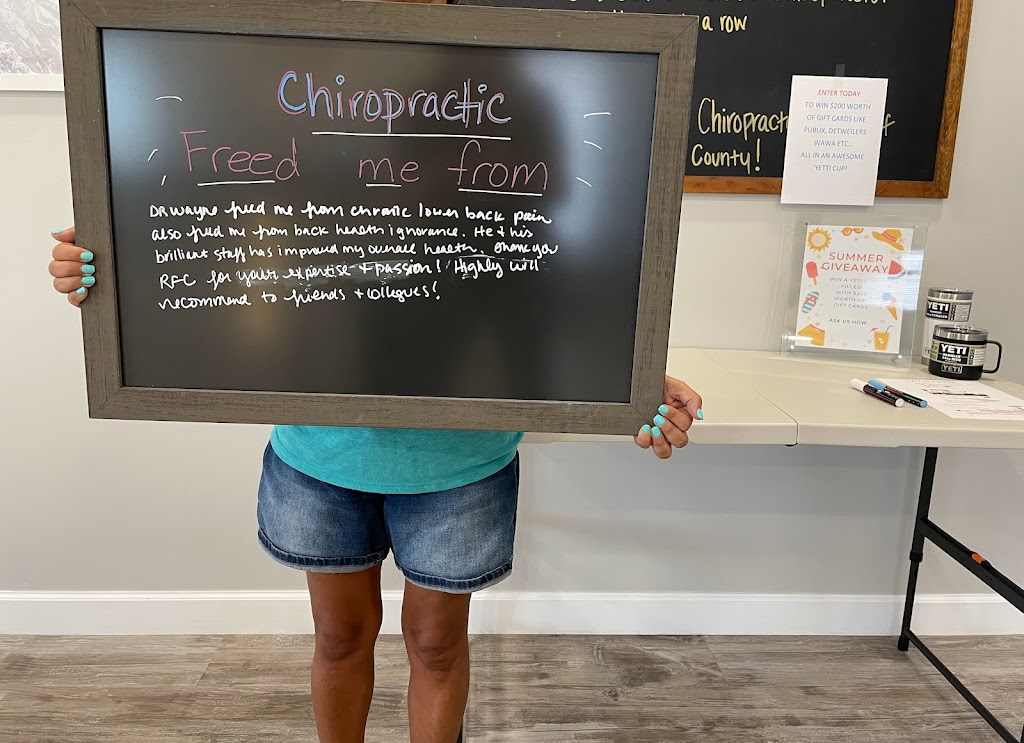 Chiropractic
Freed me from
DR Wayne freed me from chronic lower back pain
also freed me from back health ignorance. He + his
brilliant staff has improved my overall health. Thank you
RFC for your expertise + passion! Highly will
recommend to friends + collegues!
a row
Chiropract
County!
ENTER TODAY
TO WIN $200 WORTH
OF GIFT CARDS LIKE
PUBLIX, DETWEILERS
WAWA ETC...
ALL IN AN AWESOME
YETTI CUP!
SUMMER
GIVEAWAY
WIN A YETI
FILLED
WITH $200
WORTH OF
GIFT CARDS
ASK US HOW
YETI
YETI
YETI